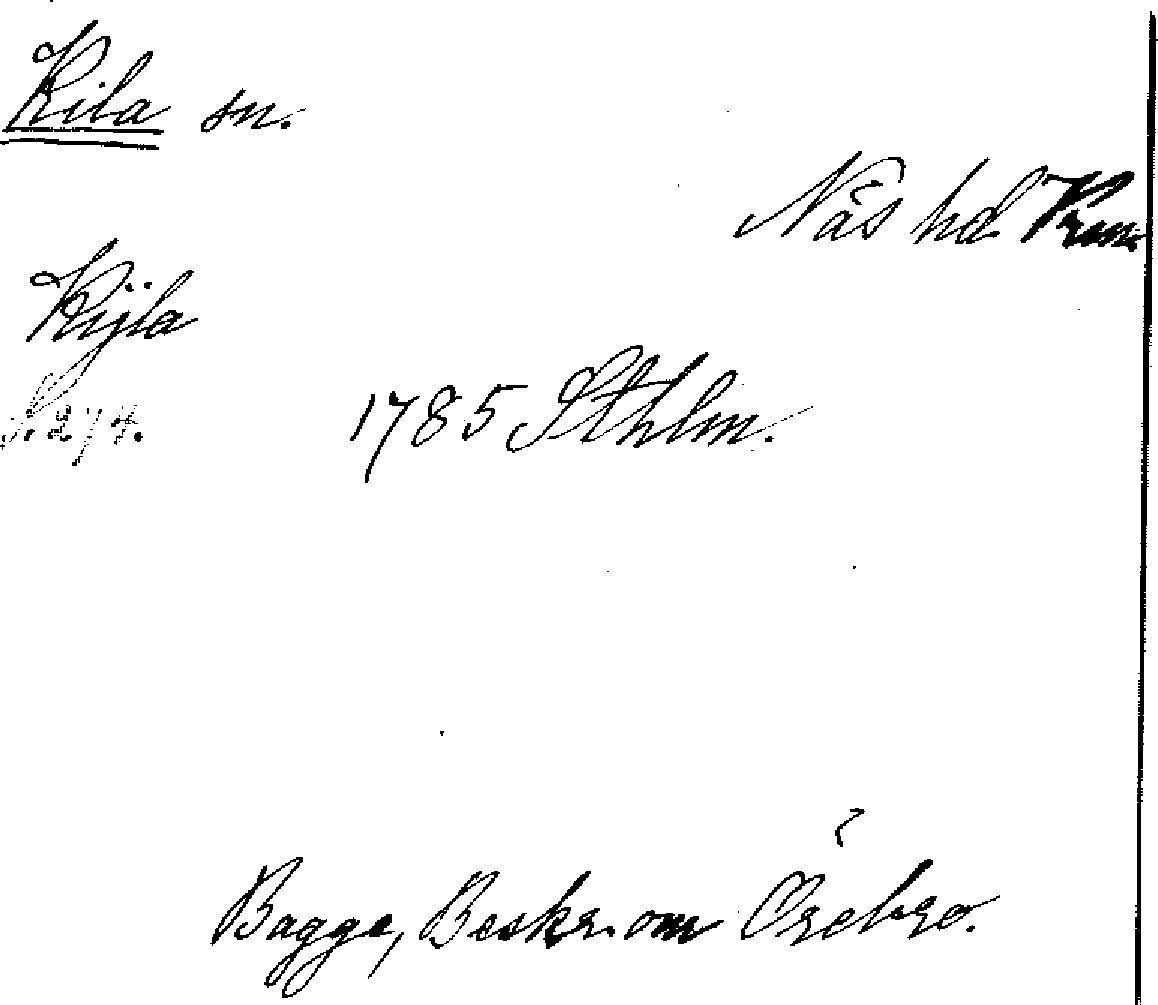 Kila sn.
Näs hd Vrm.
Kijla
S. 274.
1785 Sthlm.
Bagge, Beskr. om Örebro.